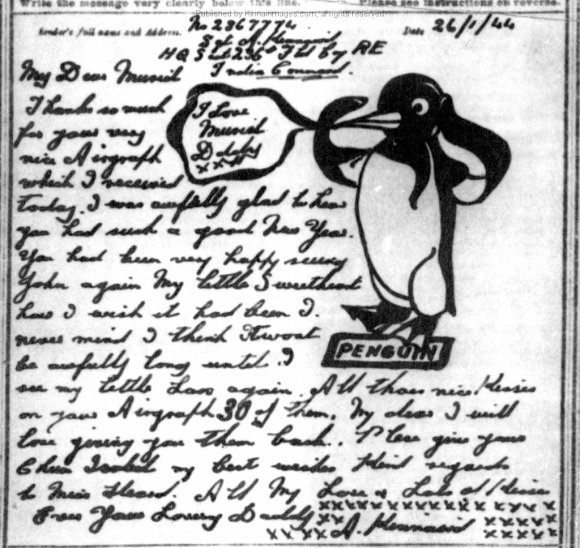 Write the message very clearly below this line.
Please see instructions on reverse.
Published by Kinnaimages.com, all rights reserved
Sender's full name and Address.
No 2367774
Date 26/1/44
Sgt A. Kinnaird
H Q S 236 Fld Coy RE
India Command.
My Dear Muriel
Thanks so much
for your very
nice Airgraph
which I received
today. I was awfully glad to hear
you had such a good New Year.
You had been very happy seeing
John again My little Sweetheart
how I wish it had been I.
never mind I think it wont
be awfully long until I
see my little Lass again. All those nice Kisses
on your Airgraph 30 of them. My dear I will
love giving you them back. Please give your
Chum Isobel my best wishes Kind regards
to Miss Heard. All My Love & Lots of Kisses
Ever Your Loving Daddy
A. Kinnaird
I Love
Muriel
Daddy
x x x x
PENGUIN